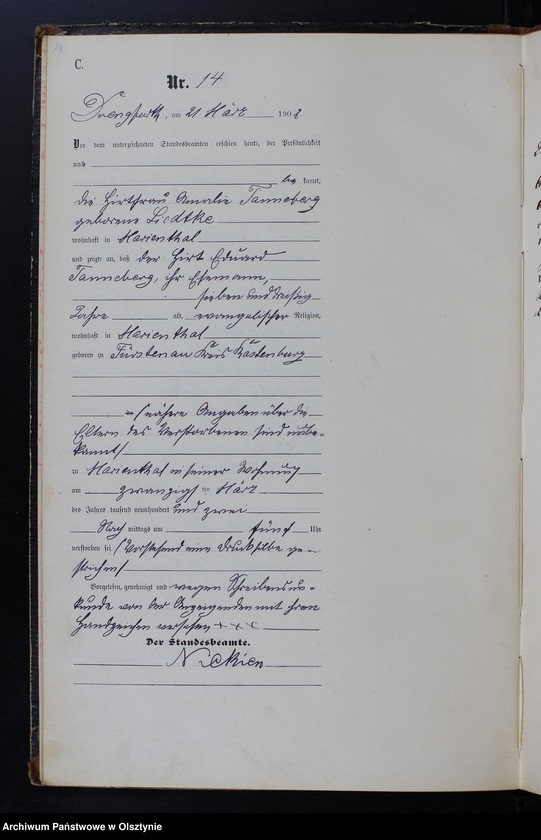 14
C.
Nr. 14
Drengfurth, am 21 März 1902.
Vor dem unterzeichneten Standesbeamten erschien heute, der Persönlichkeit
nach
be kannt,
die Hirtfrau Amalie Tanneberg
geborene Liedtke
wohnhaft in Marienthal
und zeigte an, daß der Hirt Eduard
Tanneberg, ihr Ehemann,
sieben und dreißig
Jahre alt, evangelischer Religion,
wohnhaft in Marienthal
geboren zu Fürstenau Kreis Rastenburg
(nähere Angaben über die
Eltern des Verstorbenen sind unbe-
kannt)
zu Marienthal in seiner Wohnung
am zwanzigsten März
des Jahres tausend neunhundert und zwei
Nach mittags um fünf Uhr
verstorben sei (Vorstehend eine Drucksilbe ge-
strichen)
Vorgelesen, genehmigt und wegen Schreibensun-
kunde von der Anzeigenden mit ihren
Handzeichen versehen +++
Der Standesbeamte.
Nickien
Archiwum Państwowe w Olsztynie